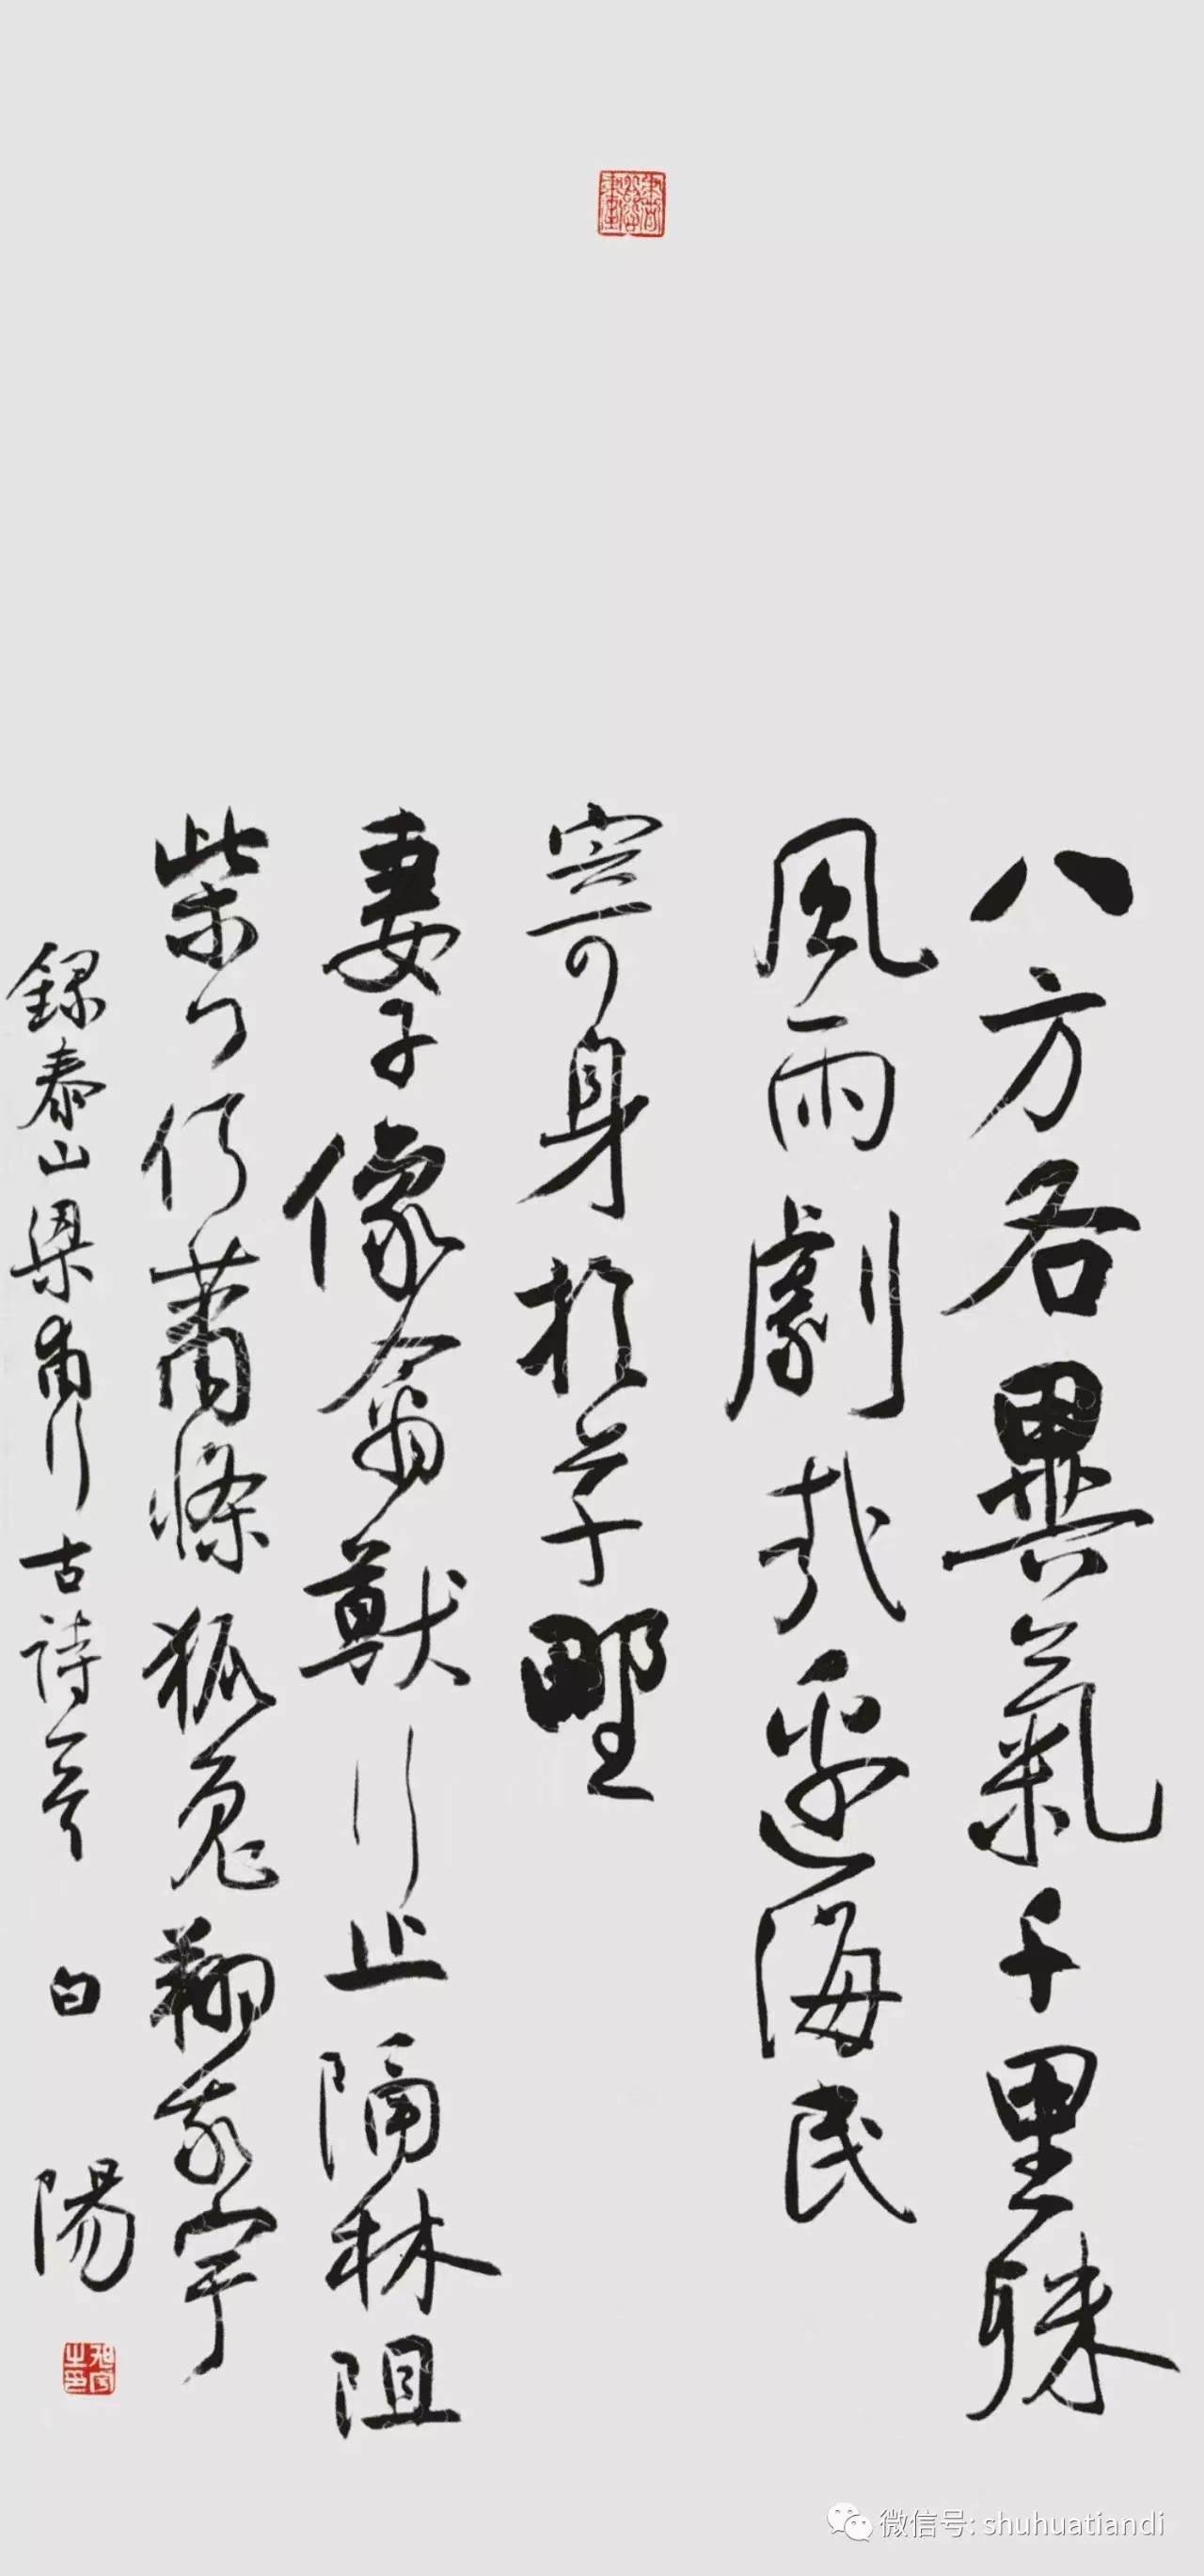 八方各異氣千里殊
風雨劇哉邊海民
寄身於草野
妻子像禽獸行止隔林阻
柴門何蕭條狐兔翔我宇
錄泰山梁甫行古詩一首 白陽
旭宇之印
微信号: shuhuatiandi